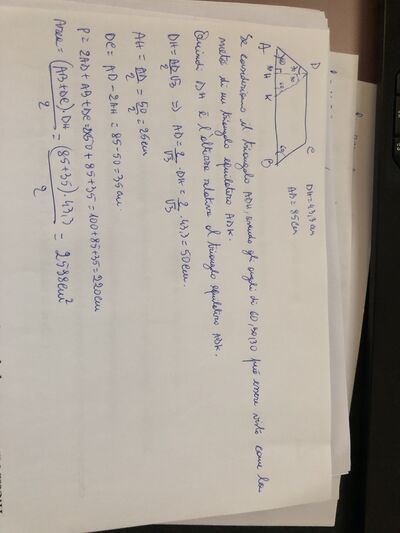 D C
30 30
60 60 60
A H K B
DH = 43,3 cm
AB = 85 cm
Se consideriamo il triangolo ADH, avendo gli angoli di 60, 90, 30 può essere visto come la
metà di un triangolo equilatero ADK.
Quindi DH è l'altezza relativa al triangolo equilatero ADK.
DH = AD√3/2 ⇒ AD = 2/√3 · DH = 2/√3 · 43,3 = 50 cm.
AH = AD/2 = 50/2 = 25 cm
DC = AD - 2AH = 85 - 50 = 35 cm.
P = 2AD + AB + DC = 2·50 + 85 + 35 = 100 + 85 + 35 = 220 cm
Area = (AB + DC) · DH / 2 = (85 + 35) · 43,3 / 2 = 2598 cm²